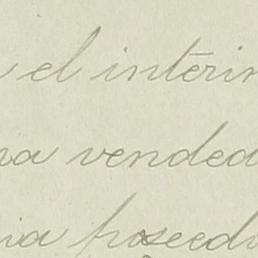 y el interin
na vendedo
ia poseedo